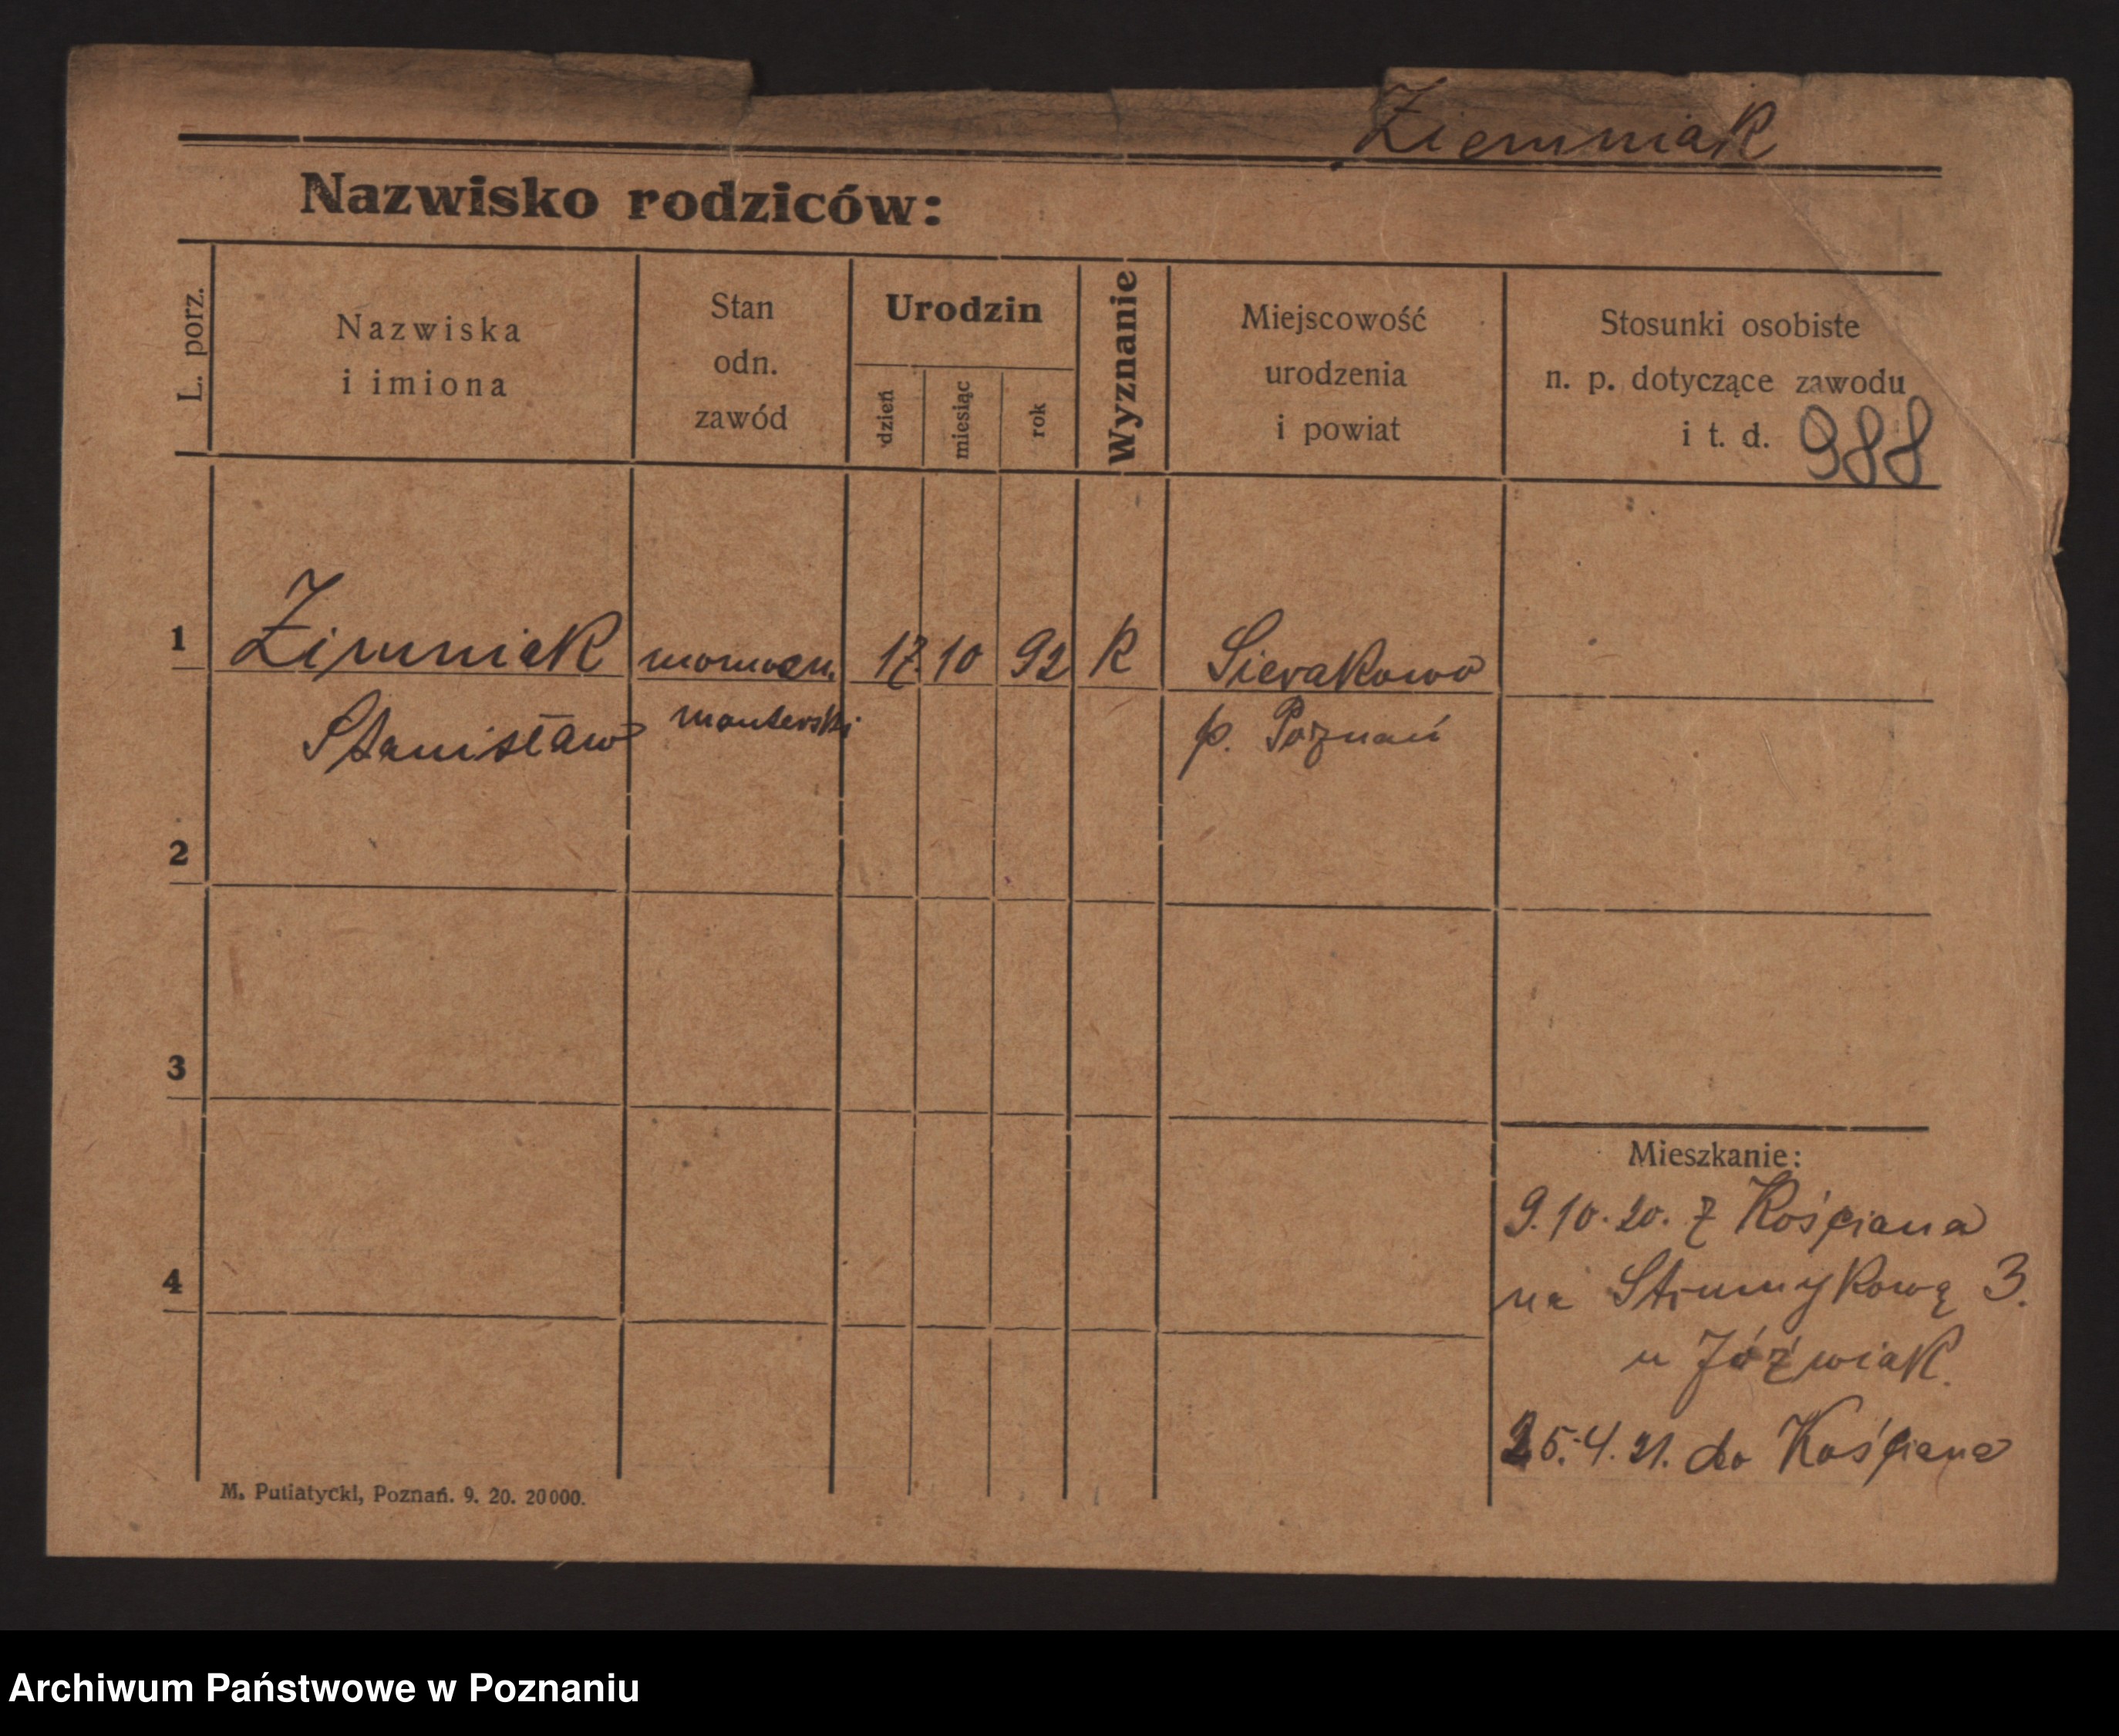 Ziemniak
Nazwisko rodziców:
L. porz.
Nazwiska
i imiona
Stan
odn.
zawód
Urodzin
dzień
miesiąc
rok
Wyznanie
Miejscowość
urodzenia
i powiat
Stosunki osobiste
n. p. dotyczące zawodu
i t. d. 988
1 Zimniak 17. 10 92 K Sierakowo
Stanisław monterski p. Poznań
2
3
4
Mieszkanie:
9.10.20. z Kościana
na Strumykową 3.
u Jóźwiak.
25.4.21. do Kościana
M. Putiatycki, Poznań. 9. 20. 20000.
Archiwum Państwowe w Poznaniu